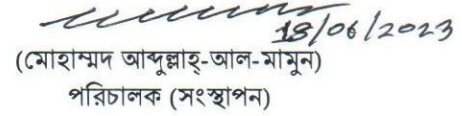 18/06/2023
(মোহাম্মদ আব্দুল্লাহ্-আল-মামুন)
পরিচালক (সংস্থাপন)